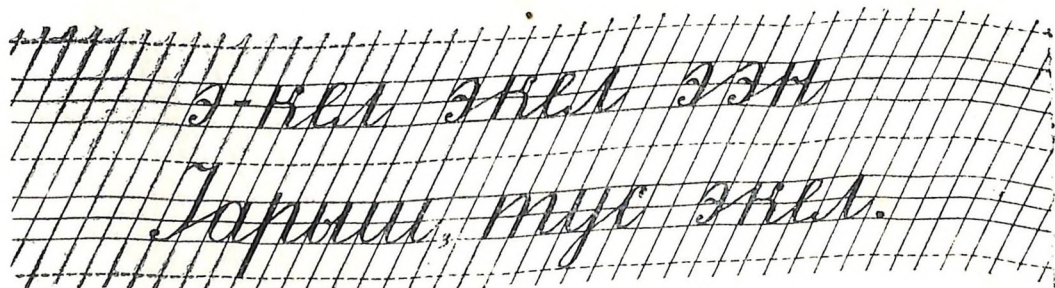 э-кел экел ээк
Јарыш, тус экел.